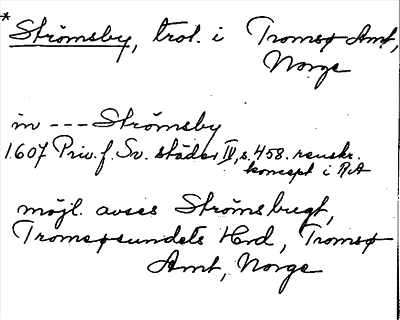 *Strömsby, trol. i Tromsø Amt,
Norge
in --- Strömsby
1607 Priv. f. Sv. städer IV, s. 458. renskr.
koncept i RA
möjl. avses Strömsbugt,
Tromsøsundets Hrd, Tromsø
Amt, Norge